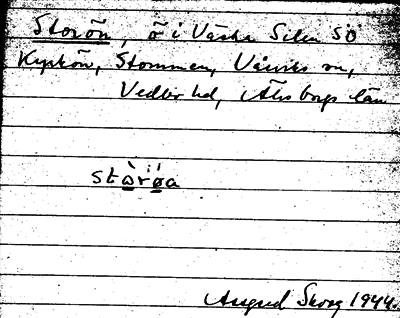 Storön, ö i Västra Silen SÖ
Kyrkön, Stommen, Vårviks sn,
Vedbo hd, Älvsborgs län
stòr̈øa
August Skog 1944.